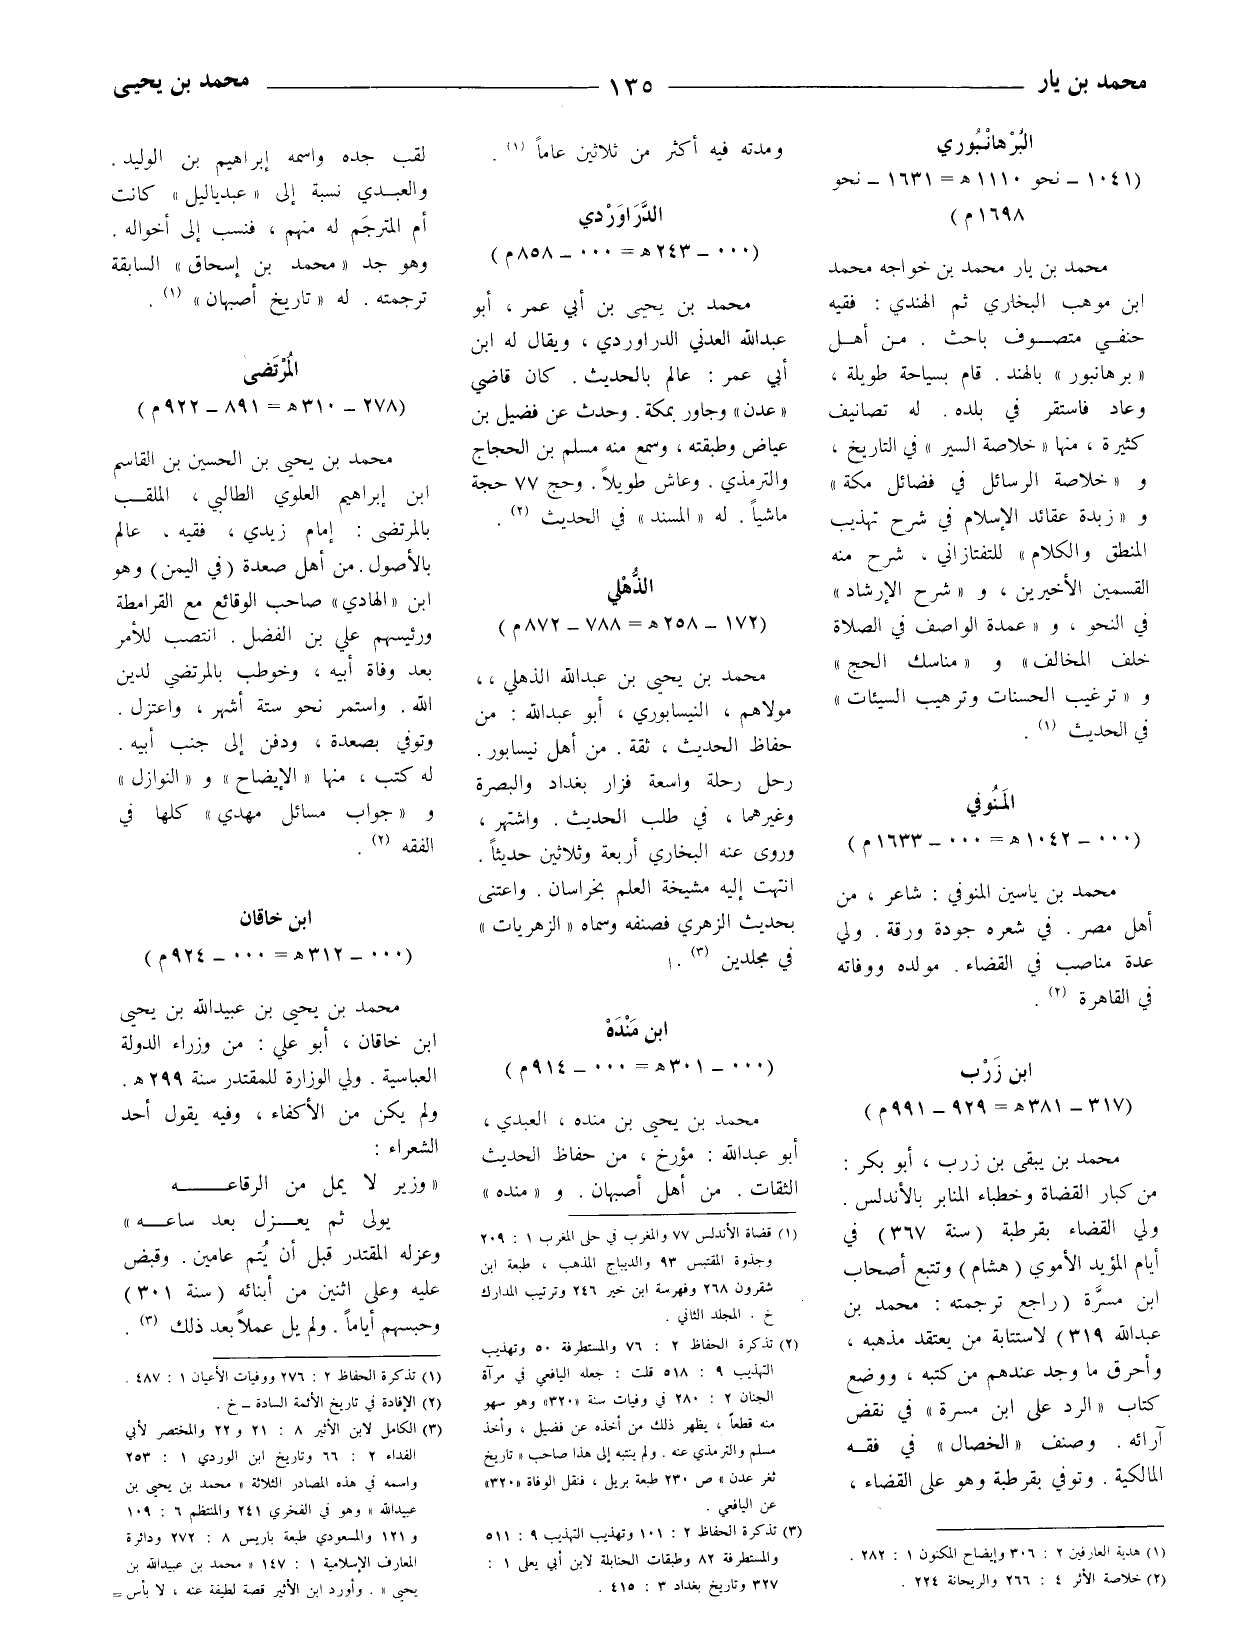 محمد بن يار ــــــ ١٣٥ ــــــ محمد بن يحيى
البُرْهانْبُوري
(١٠٤١ ـ نحو ١١١٠ هـ = ١٦٣١ ـ نحو
١٦٩٨م)
محمد بن يار محمد بن خواجه محمد
ابن موهب البخاري ثم الهندي : فقيه
حنفي متصوف باحث . من أهل
« برهانبور » بالهند . قام بسياحة طويلة ،
وعاد فاستقر في بلده . له تصانيف
كثيرة ، منها « خلاصة السير » في التاريخ ،
و « خلاصة الرسائل في فضائل مكة »
و « زبدة عقائد الإسلام في شرح تهذيب
المنطق والكلام » للتفتازاني ، شرح منه
القسمين الأخيرين ، و « شرح الإرشاد »
في النحو ، و « عمدة الواصف في الصلاة
خلف المخالف » و « مناسك الحج »
و « ترغيب الحسنات وترهيب السيئات »
في الحديث (١) .
المَنُوفي
(٠٠٠ ـ ١٠٤٢ هـ = ٠٠٠ ـ ١٦٣٣ م)
محمد بن ياسين المنوفي : شاعر ، من
أهل مصر . في شعره جودة ورقة . ولي
عدة مناصب في القضاء . مولده ووفاته
في القاهرة (٢) .
ابن زَرْب
(٣١٧ ـ ٣٨١ هـ = ٩٢٩ ـ ٩٩١م)
محمد بن يبقى بن زرب ، أبو بكر :
من كبار القضاة وخطباء المنابر بالأندلس .
ولي القضاء بقرطبة (سنة ٣٦٧) في
أيام المؤيد الأموي (هشام) وتتبع أصحاب
ابن مسرَّة (راجع ترجمته : محمد بن
عبدالله ٣١٩) لاستتابة من يعتقد مذهبه ،
وأحرق ما وجد عندهم من كتبه ، ووضع
كتاب « الرد على ابن مسرة » في نقض
آرائه . وصنف « الخصال » في فقه
المالكية . وتوفي بقرطبة وهو على القضاء ،
(١) هدية العارفين ٢ : ٣٠٦ وإيضاح المكنون ١ : ٢٨٢ .
(٢) خلاصة الأثر ٤ : ٢٦٦ والريحانة ٢٢٤ .
ومدته فيه أكثر من ثلاثين عاماً (١) .
الدَّرَاوَرْدي
(٠٠٠ ـ ٢٤٣ هـ = ٠٠٠ ـ ٨٥٨م)
محمد بن يحيى بن أبي عمر ، أبو
عبدالله العدني الدراوردي ، ويقال له ابن
أبي عمر : عالم بالحديث . كان قاضي
« عدن » وجاور بمكة . وحدث عن فضيل بن
عياض وطبقته ، وسمع منه مسلم بن الحجاج
والترمذي . وعاش طويلاً . وحج ٧٧ حجة
ماشياً . له « المسند » في الحديث (٢) .
الذُّهْلي
(١٧٢ ـ ٢٥٨ هـ = ٧٨٨ ـ ٨٧٢ م)
محمد بن يحيى بن عبدالله الذهلي ،،
مولاهم ، النيسابوري ، أبو عبدالله : من
حفاظ الحديث ، ثقة . من أهل نيسابور .
رحل رحلة واسعة فزار بغداد والبصرة
وغيرهما ، في طلب الحديث . واشتهر ،
وروى عنه البخاري أربعة وثلاثين حديثاً .
انتهت إليه مشيخة العلم بخراسان . واعتنى
بحديث الزهري فصنفه وسماه « الزهريات »
في مجلدين (٣) .
ابن مَنْدَهْ
(٠٠٠ ـ ٣٠١ هـ = ٠٠٠ ـ ٩١٤ م)
محمد بن يحيى بن منده ، العبدي ،
أبو عبدالله : مؤرخ ، من حفاظ الحديث
الثقات . من أهل أصبهان . و « منده »
(١) قضاة الأندلس ٧٧ والمغرب في حلى المغرب ١ : ٢٠٩
وجذوة المقتبس ٩٣ والديباج المذهب ، طبعة ابن
شقرون ٢٦٨ وفهرسة ابن خير ٢٤٦ وترتيب المدارك
خ . المجلد الثاني .
(٢) تذكرة الحفاظ ٢ : ٧٦ والمستطرفة ٥٠ وتهذيب
التهذيب ٩ : ٥١٨ قلت : جعله اليافعي في مرآة
الجنان ٢ : ٢٨٠ في وفيات سنة «٣٢٠» وهو سهو
منه قطعاً ، يظهر ذلك من أخذه عن فضيل ، وأخذ
مسلم والترمذي عنه . ولم ينتبه إلى هذا صاحب « تاريخ
ثغر عدن » ص ٢٣٠ طبعة بريل ، فنقل الوفاة «٣٢٠»
عن اليافعي .
(٣) تذكرة الحفاظ ٢ : ١٠١ وتهذيب التهذيب ٩ : ٥١١
والمستطرفة ٨٢ وطبقات الحنابلة لابن أبي يعلى ١ :
٣٢٧ وتاريخ بغداد ٣ : ٤١٥ .
لقب جده واسمه إبراهيم بن الوليد .
والعبدي نسبة إلى « عبدياليل » كانت
أم المترجَم له منهم ، فنسب إلى أخواله .
وهو جد « محمد بن إسحاق » السابقة
ترجمته . له « تاريخ أصبهان » (١) .
المُرْتَضى
(٢٧٨ ـ ٣١٠ هـ = ٨٩١ ـ ٩٢٢ م)
محمد بن يحيى بن الحسين بن القاسم
ابن إبراهيم العلوي الطالبي ، الملقب
بالمرتضى : إمام زيدي ، فقيه . عالم
بالأصول . من أهل صعدة (في اليمن) وهو
ابن « الهادي » صاحب الوقائع مع القرامطة
ورئيسهم علي بن الفضل . انتصب للأمر
بعد وفاة أبيه ، وخوطب بالمرتضي لدين
الله . واستمر نحو ستة أشهر ، واعتزل .
وتوفي بصعدة ، ودفن إلى جنب أبيه .
له كتب ، منها « الإيضاح » و « النوازل »
و « جواب مسائل مهدي » كلها في
الفقه (٢) .
ابن خاقان
(٠٠٠ ـ ٣١٢ هـ = ٠٠٠ ـ ٩٢٤ م)
محمد بن يحيى بن عبيدالله بن يحيى
ابن خاقان ، أبو علي : من وزراء الدولة
العباسية . ولي الوزارة للمقتدر سنة ٢٩٩ هـ .
ولم يكن من الأكفاء ، وفيه يقول أحد
الشعراء :
« وزير لا يمل من الرقاعه
يولى ثم يعزل بعد ساعه »
وعزله المقتدر قبل أن يُتم عامين . وقبض
عليه وعلى اثنين من أبنائه (سنة ٣٠١)
وحبسهم أياماً . ولم يل عملاً بعد ذلك (٣) .
(١) تذكرة الحفاظ ٢ : ٢٧٦ ووفيات الأعيان ١ : ٤٨٧ .
(٢) الإفادة في تاريخ الأئمة السادة ـ خ .
(٣) الكامل لابن الأثير ٨ : ٢١ و ٢٢ والمختصر لأبي
الفداء ٢ : ٦٦ وتاريخ ابن الوردي ١ : ٢٥٣
واسمه في هذه المصادر الثلاثة « محمد بن يحيى بن
عبيدالله » وهو في الفخري ٢٤١ والمنتظم ٦ : ١٠٩
و ١٢١ والمسعودي طبعة باريس ٨ : ٢٧٢ ودائرة
المعارف الإسلامية ١ : ١٤٧ « محمد بن عبيدالله بن
يحيى » . وأورد ابن الأثير قصة لطيفة عنه ، لا بأس =